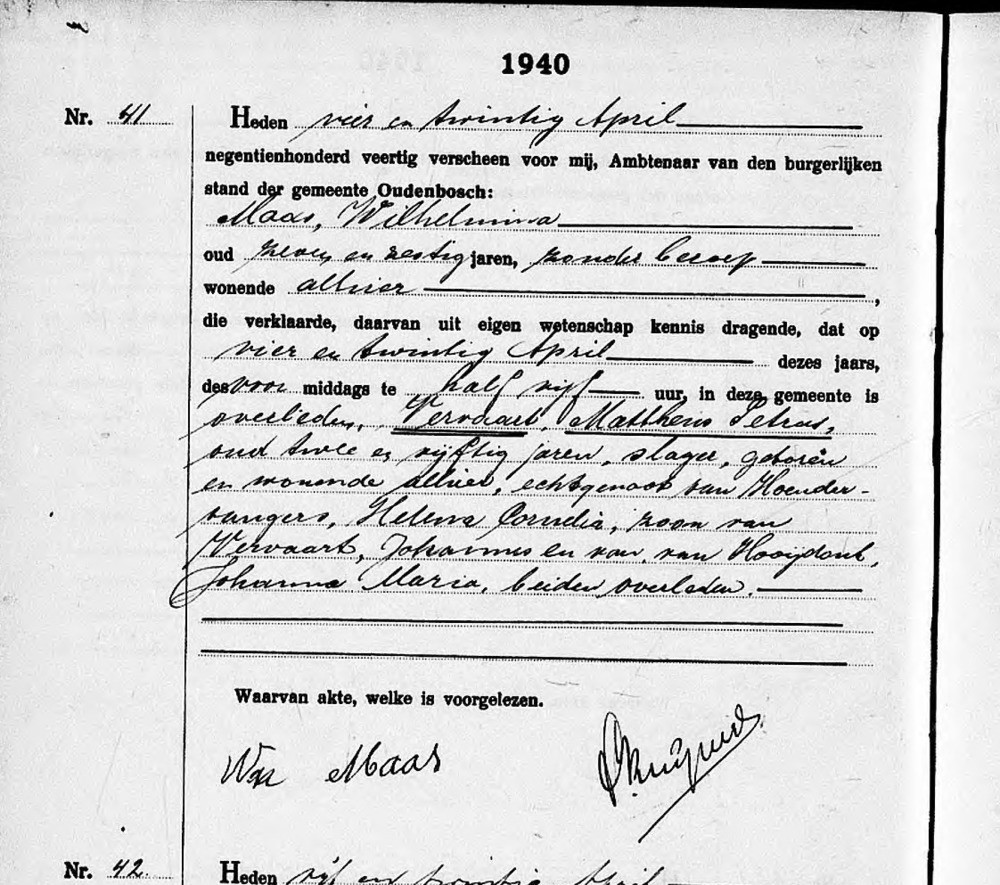 1940
Nr. 41 Heden vier en twintig April
negentienhonderd veertig verscheen voor mij, Ambtenaar van den burgerlijken
stand der gemeente Oudenbosch:
Maas, Wilhelmina
oud zeven en zestig jaren, zonder beroep
wonende alhier,
die verklaarde, daarvan uit eigen wetenschap kennis dragende, dat op
vier en twintig April dezes jaars,
des voor middags te half vijf uur, in deze gemeente is
overleden, Vervaart, Mattheus Petrus,
oud twee en vijftig jaren, slager, geboren
en wonende alhier, echtgenoot van Hoender-
vangers, Helena Cornelia, zoon van
Vervaart, Johannes en van van Hooijdonk,
Johanna Maria, beiden overleden.
Waarvan akte, welke is voorgelezen.
Maas
Nr. 42. Heden vijf en twintig April